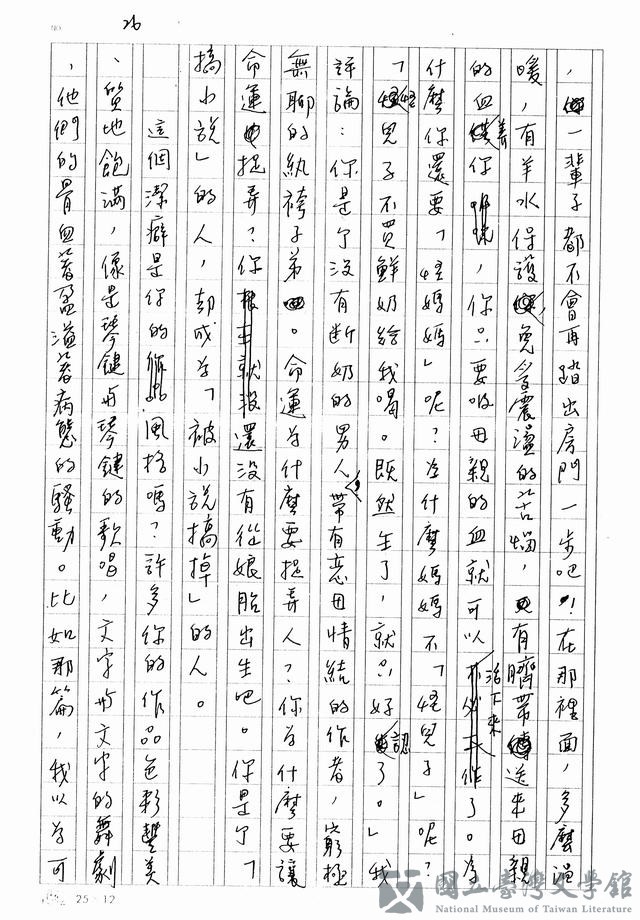 26
，一輩子都不會再踏出房門一步吧！在那裡面，多麼溫
暖，有羊水保護，免受震盪的苦惱，有臍帶送來母親
的血養你，你只要吸母親的血就可以活下來了。為
什麼你還要「怪媽媽」呢？為什麼媽媽不「怪兒子」呢？
「怪兒子不買鮮奶給我喝。既然生了，就只好認了。」我
評論：你是個沒有斷奶的男人，帶有戀母情結的作者，窮極
無聊的紈袴子弟。命運為什麼要捉弄人？你為什麼要讓
命運捉弄？你還沒有從娘胎出生吧。你是個「
搞小說」的人，却成為「被小說搞掉」的人。
這個潔癖是你的風格嗎？許多你的作品色彩豐美
、質地飽滿，像是琴鍵與琴鍵的歌唱，文字與文字的舞劇
，他們的骨血盈溢著病態的騷動。比如那篇，我以為可
25×12
國立臺灣文學館
National Museum of Taiwan Literature